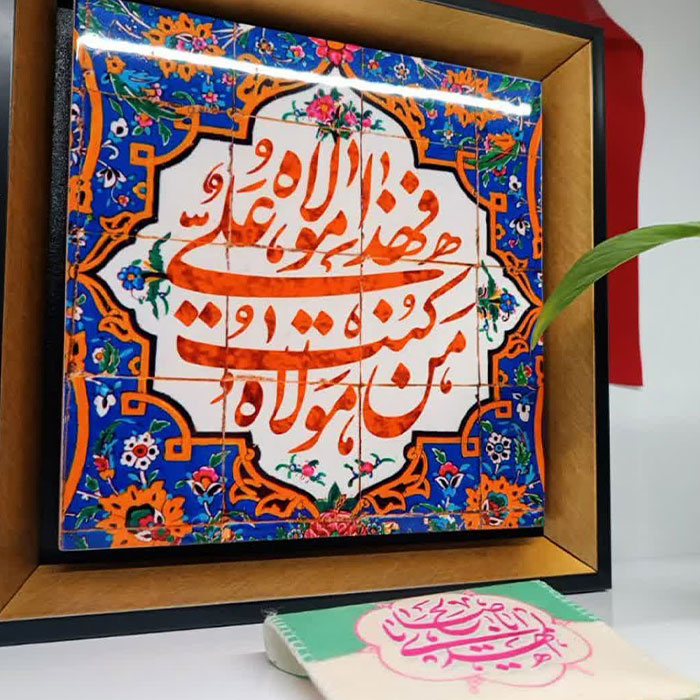 مَن كُنتُ مَولاه
فهذا عَليٌّ مَولاه